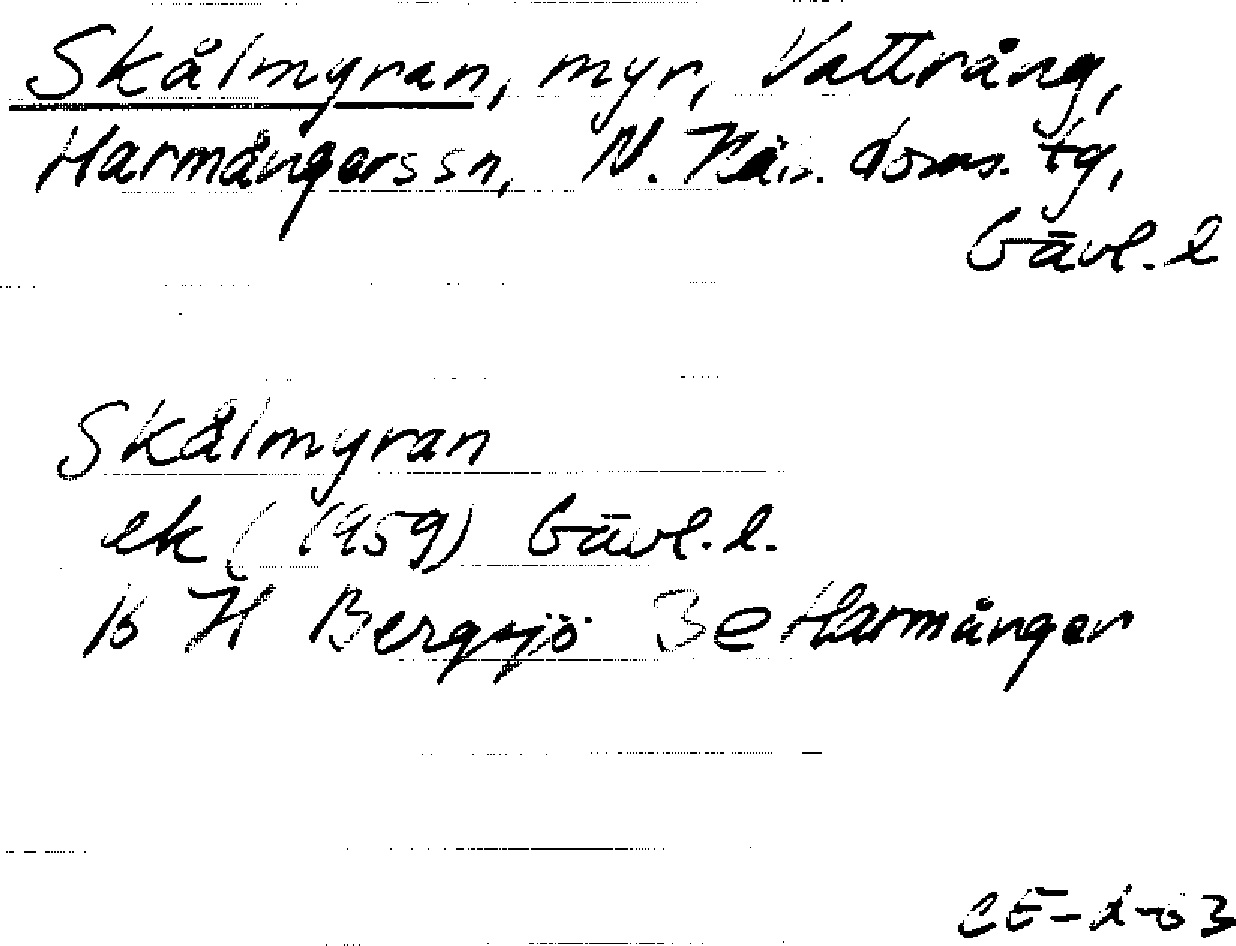 Skålmyran, myr, Vattrång,
Harmångerssn, N. Häls. doms. tg,
Gävl. l
Skålmyran
ek (1959) Gävl. l.
16 H Bergsjö 3e Harmånger